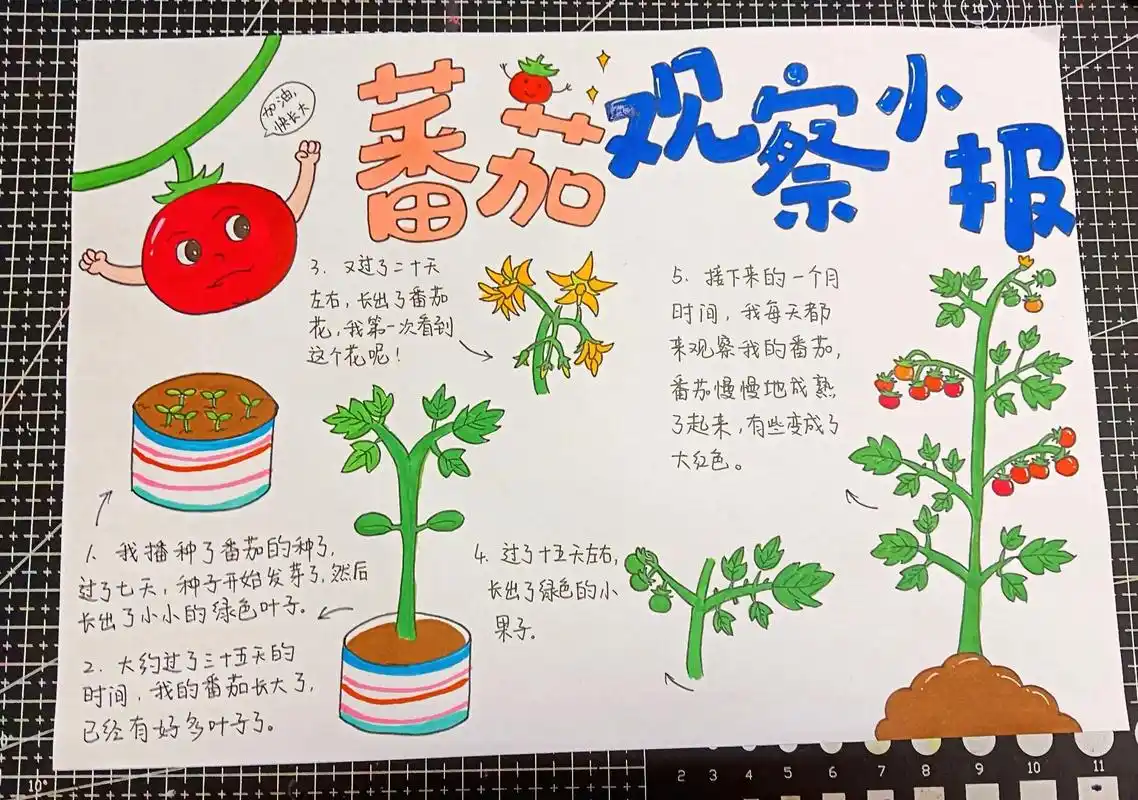 番茄观察小报
加油,
快长大
1. 我播种了番茄的种子,
过了七天,种子开始发芽了,然后
长出了小小的绿色叶子。
2. 大约过了三十五天的
时间,我的番茄长大了,
已经有好多叶子了。
3. 又过了二十天
左右,长出了番茄
花,我第一次看到
这个花呢!
4. 过了十五天左右,
长出了绿色的小
果子。
5. 接下来的一个月
时间,我每天都
来观察我的番茄,
番茄慢慢地成熟
了起来,有些变成了
大红色。
10°
10°
2 3 4 5 6 7 8 9 10 11